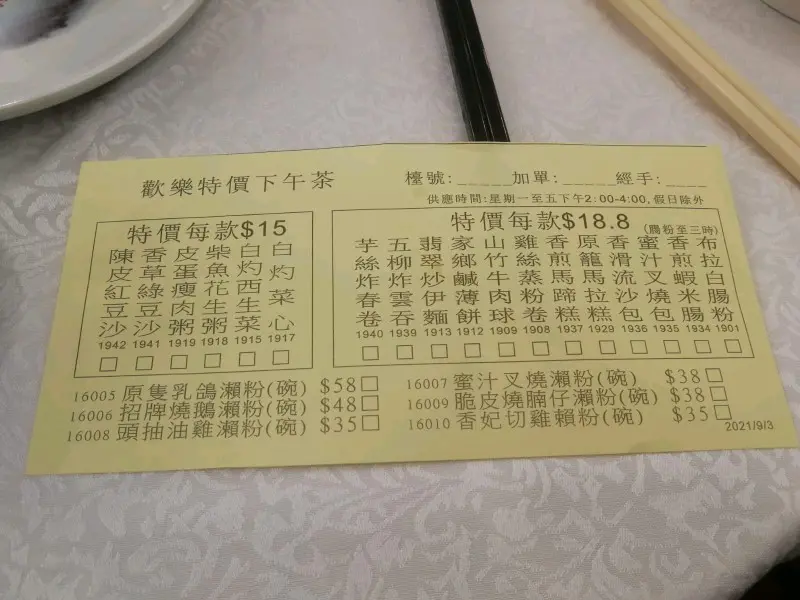 歡樂特價下午茶
檯號:_____加單:_____經手:____
供應時間:星期一至五下午2:00-4:00,假日除外
特價每款$15
陳皮紅豆沙 1942 □
香草綠豆沙 1941 □
皮蛋瘦肉粥 1919 □
柴魚花生粥 1918 □
白灼西生菜 1915 □
白灼菜心 1917 □
特價每款$18.8 (腸粉至三時)
芋絲炸春卷 1940 □
五柳炸雲吞 1939 □
翡翠炒伊麵 1913 □
家鄉鹹薄餅 1912 □
山竹牛肉球 1909 □
雞絲蒸粉卷 1908 □
香煎馬蹄糕 1937 □
原籠馬拉糕 1929 □
香滑流沙包 1936 □
蜜汁叉燒包 1935 □
香煎蝦米腸 1934 □
布拉白腸粉 1901 □
16005 原隻乳鴿瀨粉(碗) $58□
16006 招牌燒鵝瀨粉(碗) $48□
16008 頭抽油雞瀨粉(碗) $35□
16007 蜜汁叉燒瀨粉(碗) $38□
16009 脆皮燒腩仔瀨粉(碗) $38□
16010 香妃切雞賴粉(碗) $35□
2021/9/3